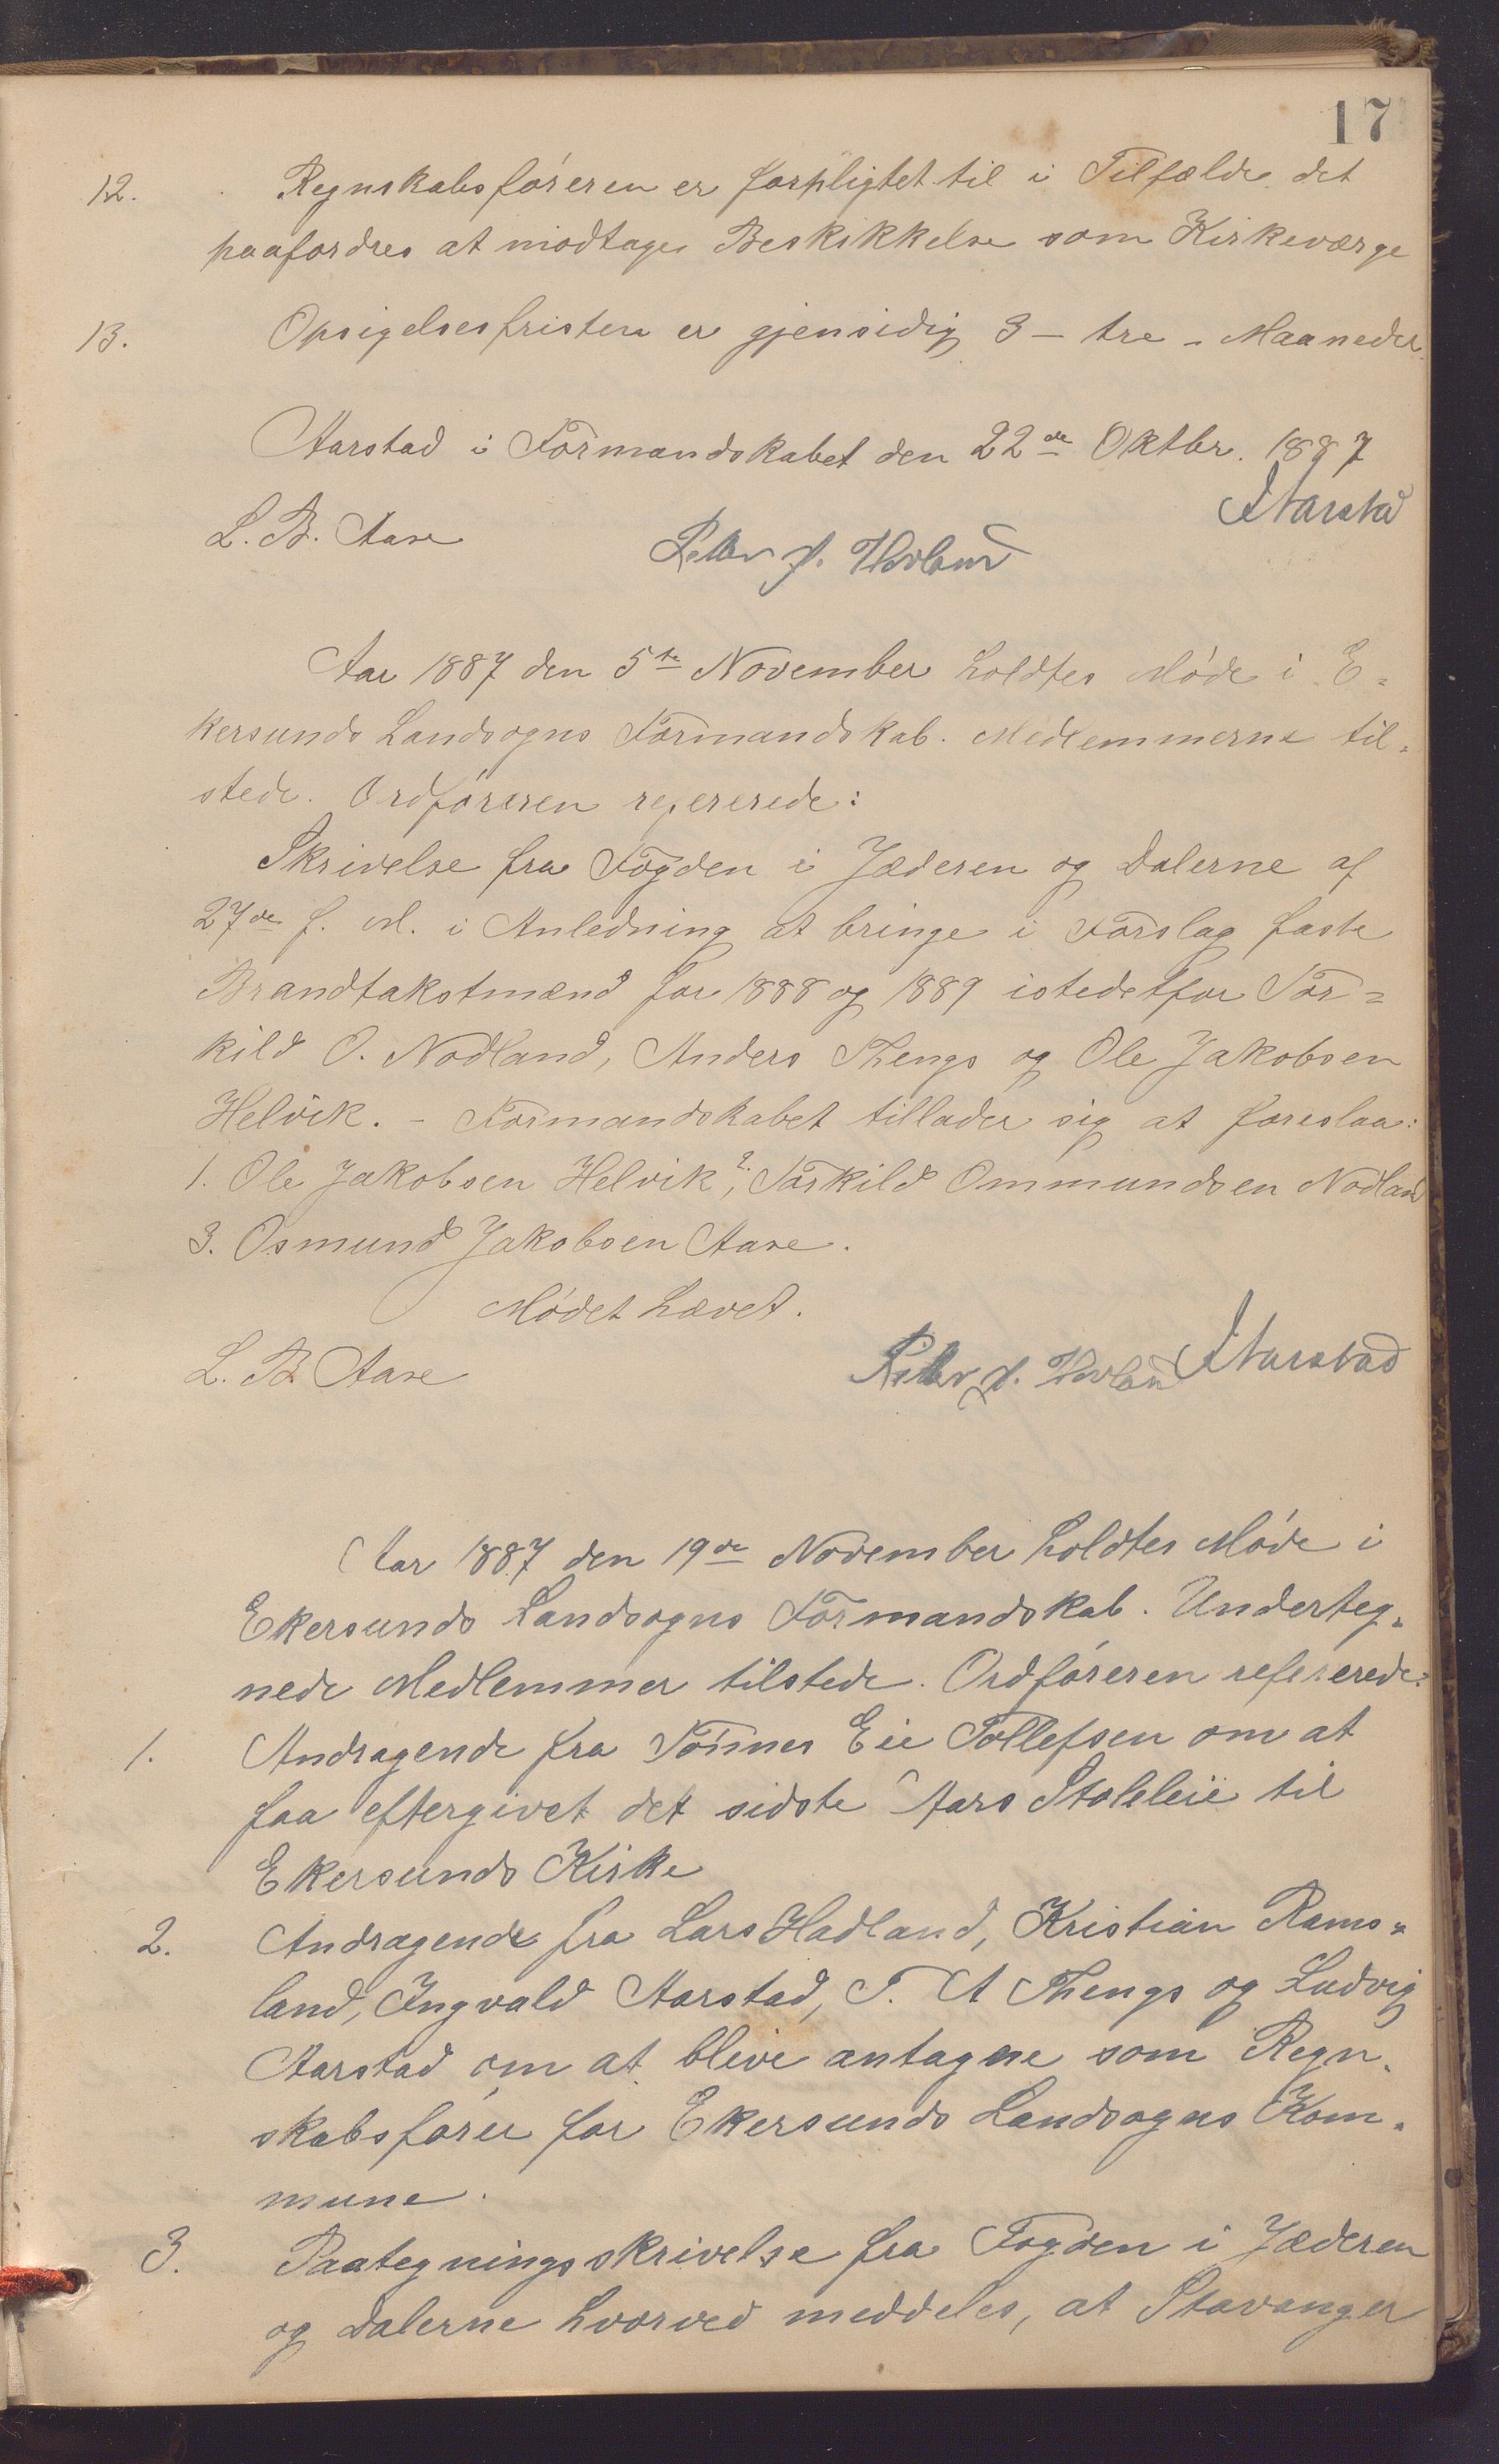 17
12. Regnskabsføreren er forpligtet til i Tilfælde det
paafordres at modtage Beskikkelse som Kirkeværge
13. Opsigelsesfristen er gjensidig 3 – tre – Maaneder.
Aarstad i Formandskabet den 22de Oktbr. 1887
Aarstad
L. B. Aase
Peder J. Hovland
Aar 1887 den 5te November holdtes Møde i E=
kersunds Landsogns Formandskab. Medlemmerne til=
stede. Ordføreren refererede:
Skrivelse fra Fogden i Jæderen og Dalerne af
27de f. M. i Anledning at bringe i Forslag faste
Brandtakstmænd for 1888 og 1889 istedetfor Tor=
kild O. Nodland, Anders Thengs og Ole Jakobsen
Helvik. – Formandskabet tillader sig at foreslaa:
1. Ole Jakobsen Helvik, 2. Torkild Ommundsen Nodland
3. Osmund Jakobsen Aase.
Mødet hævet.
L. B. Aase
Peder J. Hovland Aarstad
Aar 1887 den 19de November holdtes Møde i
Ekersunds Landsogns Formandskab. Underteg=
nede Medlemmer tilstede. Ordføreren refererede:
1. Andragende fra Tønnes Eie Tollefsen om at
faa eftergivet det sidste Aars Stoleleie til
Ekersunds Kirke
2. Andragende fra Lars Hadland, Kristian Rams=
land, Ingvald Aarstad, T. A Thengs og Ludvig
Aarstad om at blive antagne som Regn=
skabsfører for Ekersunds Landsogns Kom=
mune.
3. Paategningsskrivelse fra Fogden i Jæderen
og Dalerne hvorved meddeles, at Stavanger